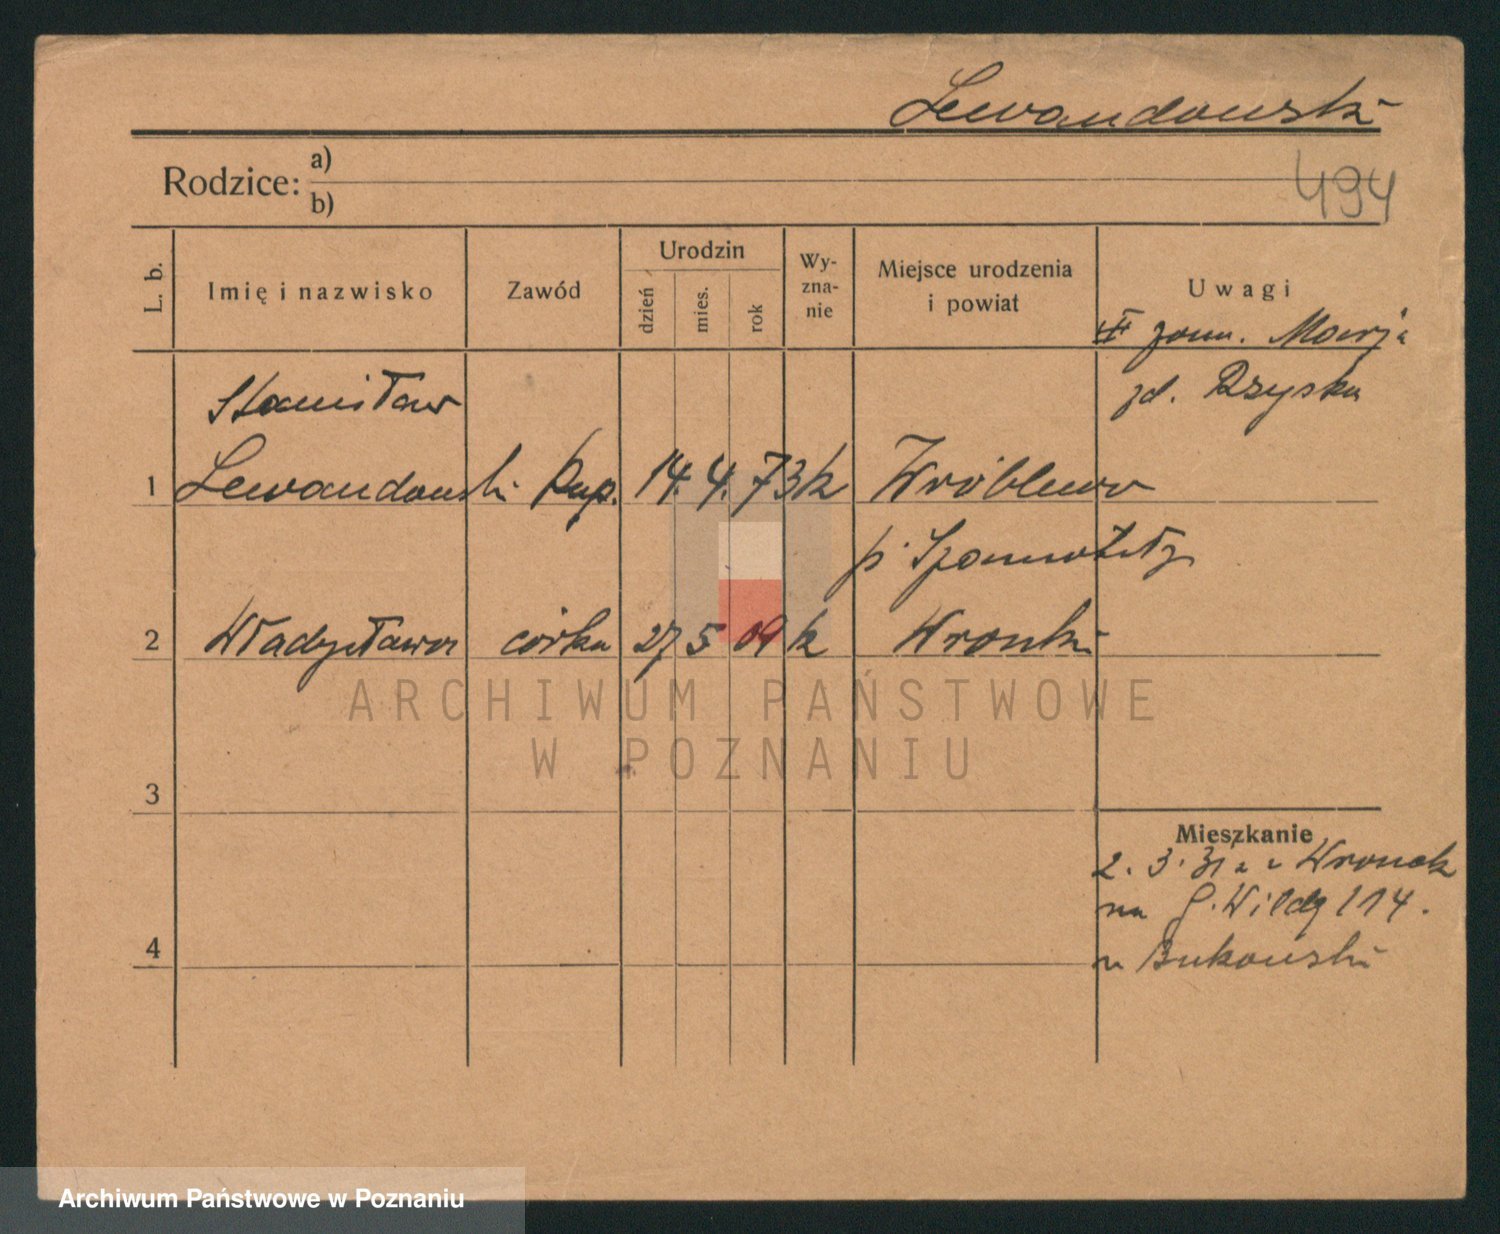 Lewandowski
Rodzice: a)
b)
494
L. b.
Imię i nazwisko
Zawód
Urodzin
dzień
mies.
rok
Wy-
zna-
nie
Miejsce urodzenia
i powiat
Uwagi
II zam. Marja
zd. Rzyska
Stanisław
1 Lewandowski Kup. 14. 4. 73 k Wróblewo
p. Szamotuły
2 Władysława córka 27 5 09 k Wronki
3
4
Mieszkanie
2. 3. 31 z Wronek
na G. Wildę 114.
u Bukowski
ARCHIWUM PAŃSTWOWE
W POZNANIU
Archiwum Państwowe w Poznaniu